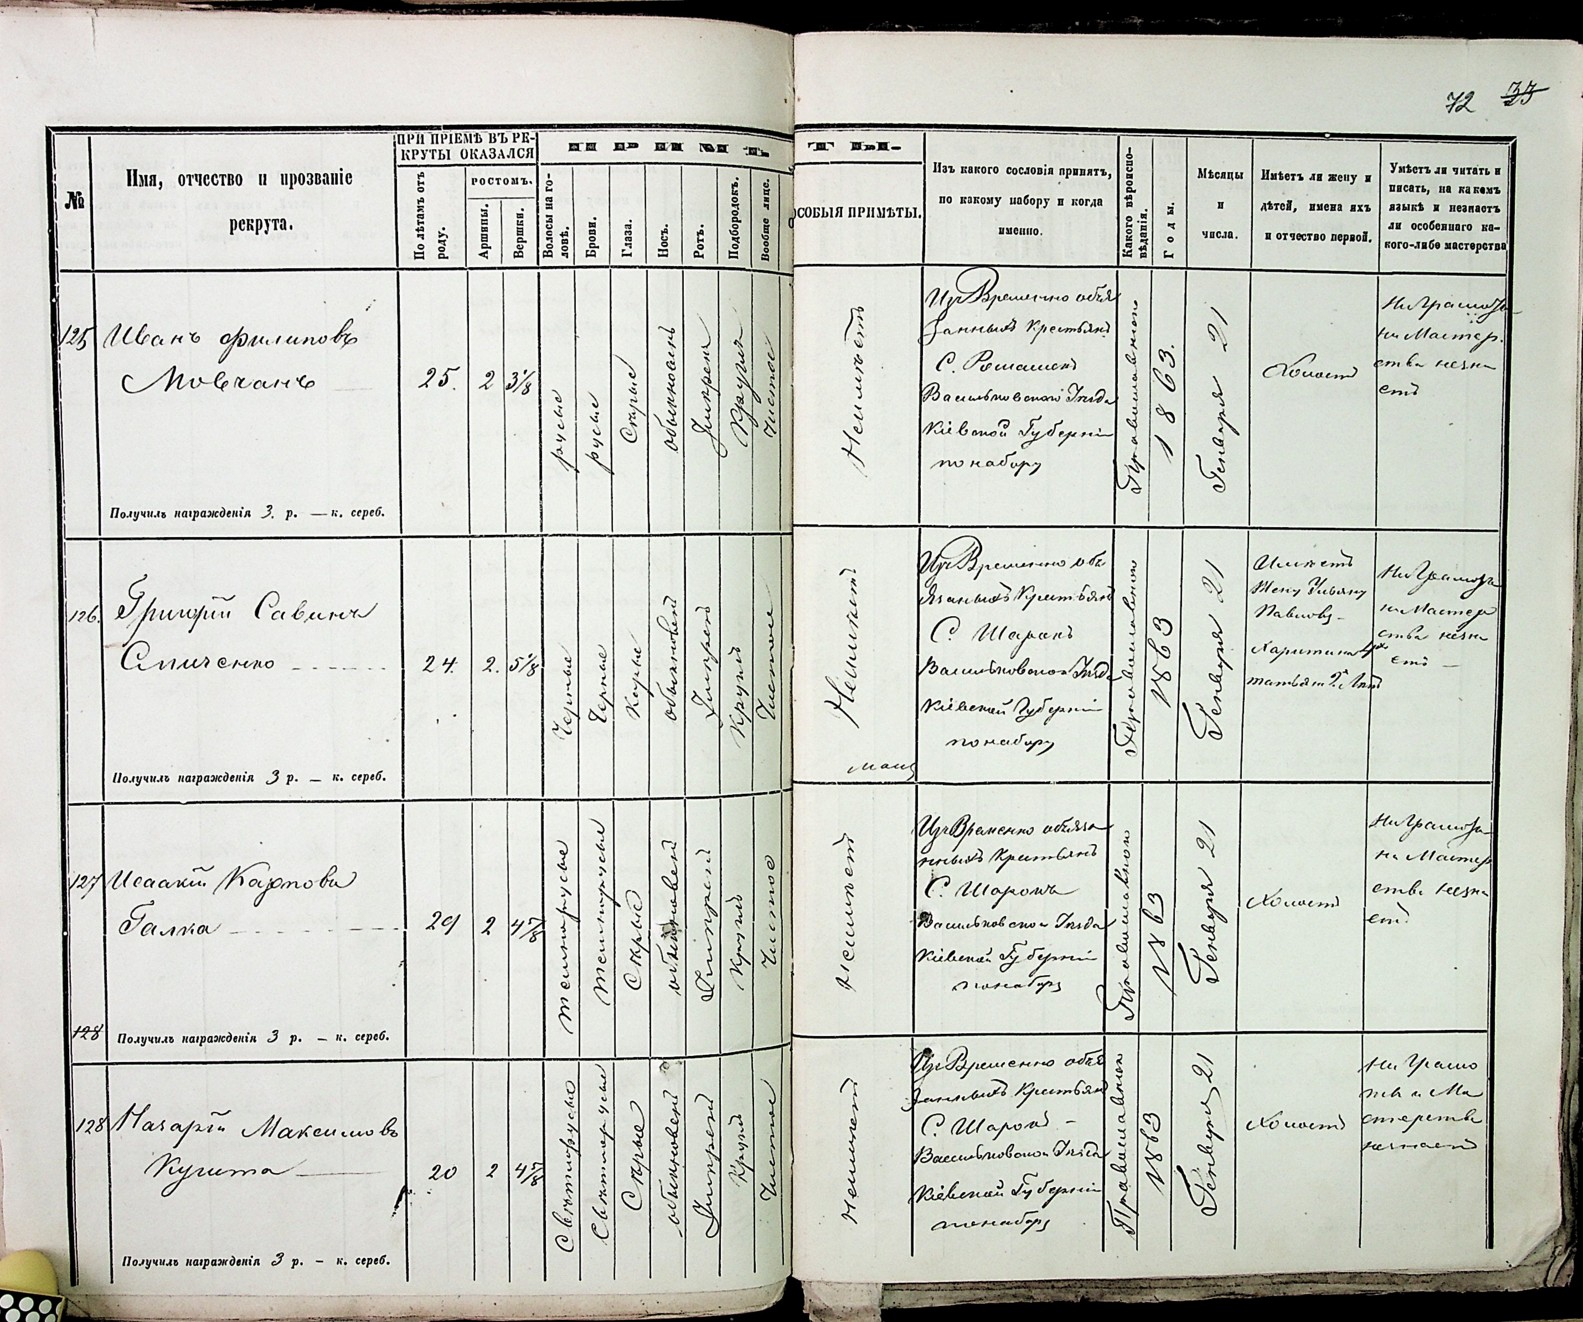 72 33
№
Имя, отчество и прозваніе
рекрута.
ПРИ ПРІЕМѢ ВЪ РЕ-
КРУТЫ ОКАЗАЛСЯ
По лѣтамъ отъ
роду.
ростомъ.
Аршины.
Вершки.
ПРИМѢТЫ.
Волосы на го-
ловѣ.
Брови.
Глаза.
Носъ.
Ротъ.
Подбородокъ.
Вообще лице.
ОСОБЫЯ ПРИМѢТЫ.
Изъ какого сословія принятъ,
по какому набору и когда
именно.
Какого вѣроиспо-
вѣданія.
Годы.
Мѣсяцы
и
числа.
Имѣетъ ли жену и
дѣтей, имена ихъ
и отчество первой.
Умѣетъ ли читать и
писать, на какомъ
языкѣ и незнаетъ
ли особеннаго ка-
кого-либо мастерства
125
Иванъ Филиповъ
Мовчанъ
25.
2
3 1/8
русые
русые
Сѣрые
обыкновенъ
Умѣрен
Кругл
Чистое
Неимѣетъ
Изъ Временно обя
занныхъ Крестьянъ
С. Ромашекъ
Васильковскаго Уѣзда
Кіевской Губерніи
по набору
Православнаго
1863.
Генваря 21
Холостъ
Ни Грамоты
ни Мастер.
ства незна
етъ
Получилъ награжденія 3. р. — к. сереб.
126.
Григорій Савинъ
Спиченко
24.
2.
5 1/8
Черные
Черные
Каріе
обыкновен
Умѣрен
Круглъ
Чистое
Неимѣетъ
Изъ Временно обя
занныхъ Крестьянъ
С. Шарокъ
Васильковскаго Уѣзда
Кіевской Губерніи
по набору
Православнаго
1863
Генваря 21
Имѣетъ
Жену Ульяну
Павлову
Ни Грамоты
ни Мастер
ства незна
етъ
Получилъ награжденія 3 р. — к. сереб.
127
Исаакій Карповъ
Галка
29
2
4 7/8
темнорусые
темнорусые
Сѣрые
обыкновен
Умѣрен
Круглъ
Чистое
Неимѣетъ
Изъ Временно обяза
нныхъ Крестьянъ
С. Шарокъ
Васильковскаго Уѣзда
Кіевской Губерніи
по набору
Православнаго
1863
Генваря 21
Холостъ
Ни Грамоты
ни Мастер
ства незна
етъ.
128
Получилъ награжденія 3 р. — к. сереб.
128
Назарій Максимовъ
20
2
4 7/8
Свѣтлорусые
Свѣтлорусые
Сѣрые
обыкновен
Умѣрен
Круглъ
Чистое
Неимѣетъ
Изъ Временно обя
занныхъ Крестьянъ
С. Шарокъ
Васильковскаго Уѣзда
Кіевской Губерніи
по набору
Православнаго
1863
Генваря 21
Холостъ
Ни Грамо
ты и Ма
стерства
незнаетъ
Получилъ награжденія 3 р. — к. сереб.